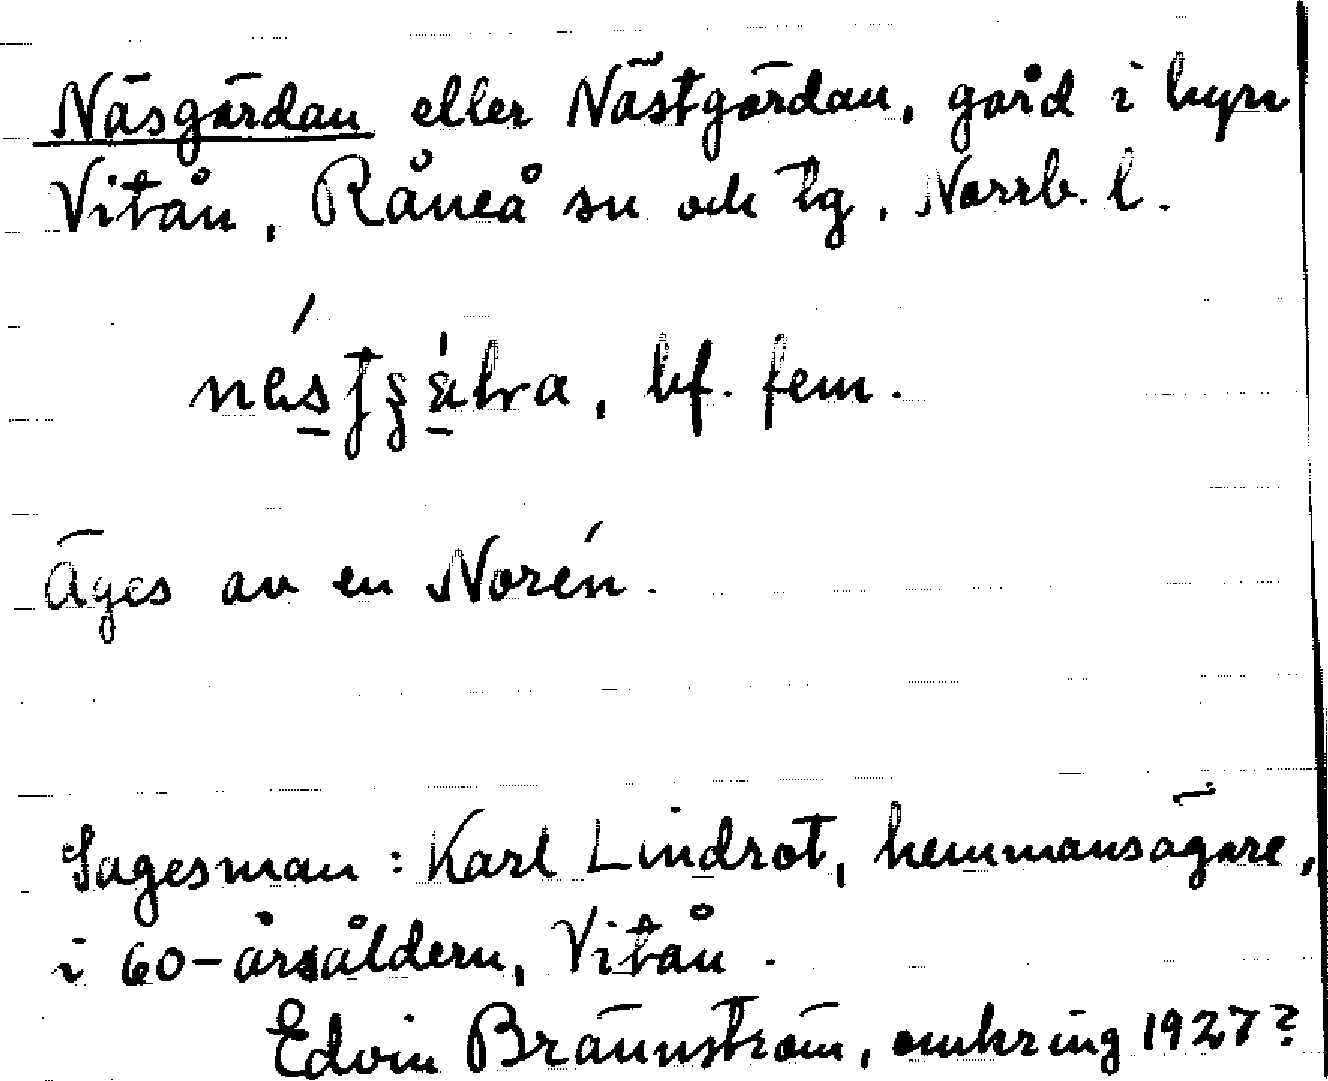 Näsgärdan eller Nästgärdan, gård i byn
Vitån, Råneå sn och tg, Norrb. l.
bf. fem.
Äges av en Norén.
Sagesman: Karl Lindrot, hemmansägare,
i 60-årsåldern, Vitån.
Edvin Brännström, omkring 1927?